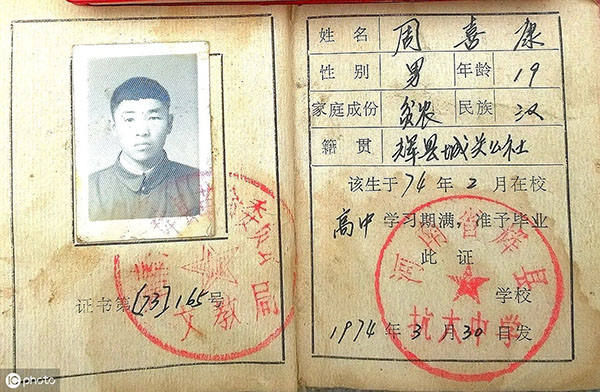 证书第[73]165号
文教局
姓名 周喜康
性别 男 年龄 19
家庭成份 贫农 民族 汉
籍贯 辉县城关公社
该生于74年2月在校
高中学习期满，准予毕业
此证
河南省辉县
学校
抗大中学
1974年3月30日发
iC photo